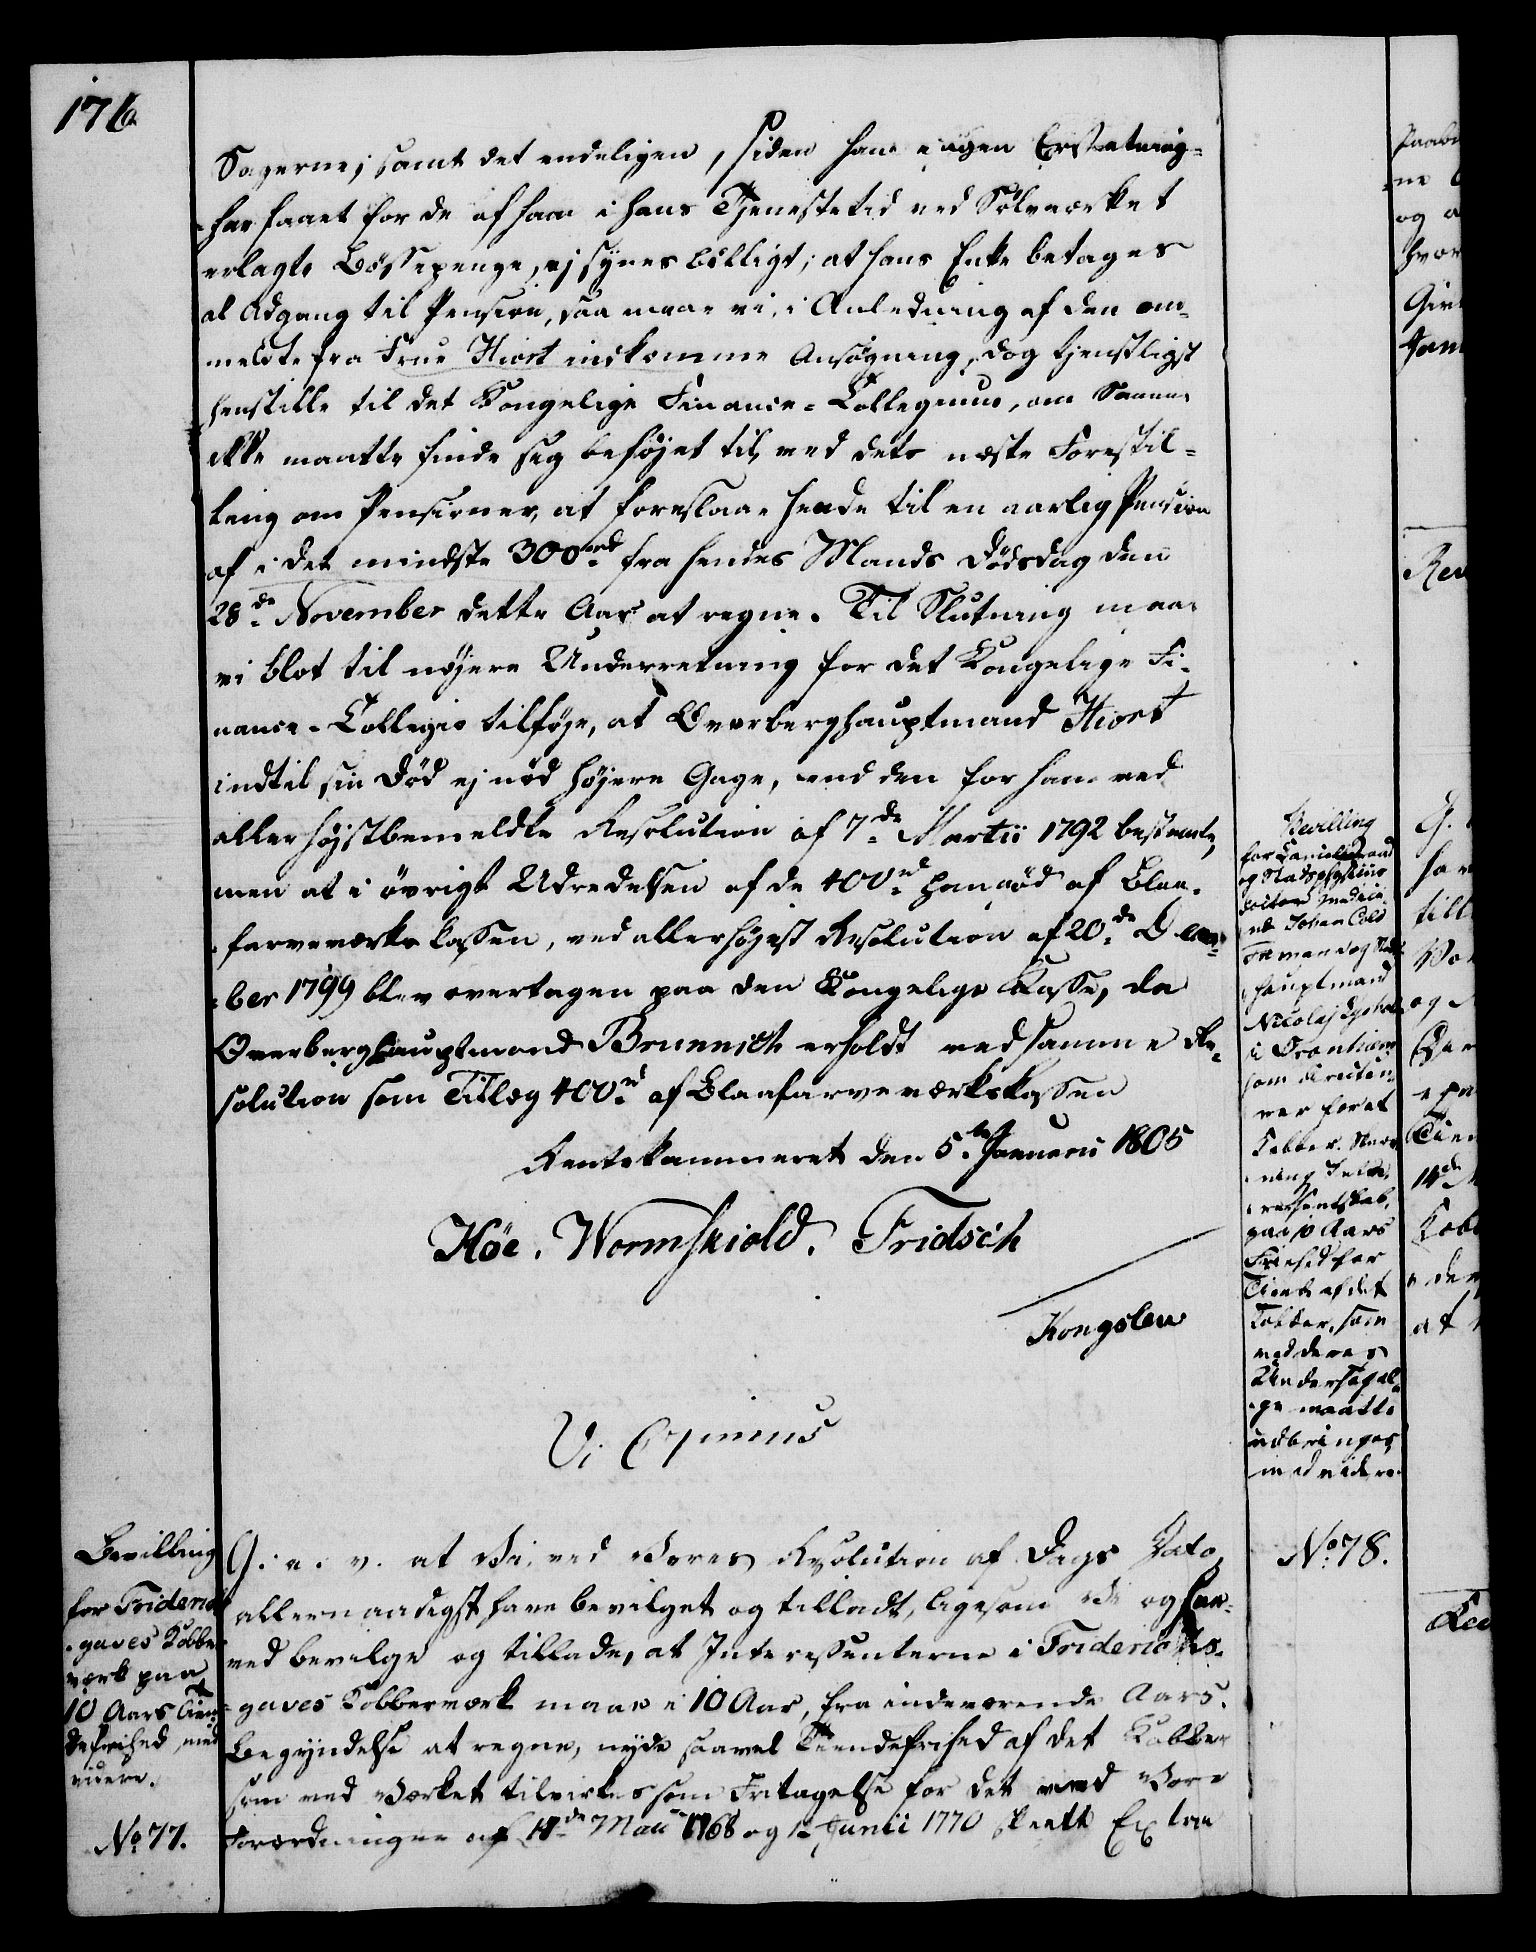 176
Sagerne; samt det endeligen, siden han ingen Erstatning
har faaet for de af ham i hans Tjenestetid ved Sølvværket
erlagte Bøssepenge, ej synes billigt, at hans Enke betages
al Adgang til Pension, saa maae vi, i Anledning af den om-
meldte fra Frue Hiort indkomne Ansøgning, dog tjenstligst
henstille til det Kongelige Finance-Collegium, om Samme
ikke maatte finde sig beføjet til, ved dets næste Forestil-
ling om Pensioner, at foreslaae hende til en aarlig Pension
af i det mindste 300rd fra hendes Mands Dødsdag den
28de November dette Aar at regne. Til Slutning maae
vi blot til nøjere Underretning for det Kongelige Fi-
nance-Collegio tilføje, at Overberghauptmand Hiort
indtil sin Død ej nød højere Gage, end den for ham ved
allerhøjstbemeldte Resolution af 7de Martii 1792 bestemte,
men at i øvrigt Udredelsen af de 400rd han nød af Blaae-
farveværks Cassen, ved allerhøjest Resolution af 20de Decem-
ber 1799 blev overtagen paa den Kongelige Kasse, da
Overberghauptmand Brunnich erholdt ved samme Re-
solution som Tillæg 400rd af Blaafarveværkskassen
Rentekammeret den 5te Januarii 1805
Höe. Wormskiold. Fridsch
Kongslew
Bevilling
for Friderich
gaves Kobber
værk paa
10 Aars Tien-
defrihed med
videre.
No 77.
G: a. v. at Vi, ved Vores Resolution af Dags Dato,
allernaadigst have bevilget og tilladt, ligesom Vi og her-
ved bevilge og tillade, at Interessenterne i Friderichs-
gaves Kobberværk maae i 10 Aar, fra indeværende Aars
Begyndelse at regne, nyde saavel Tiendefrihed af det Kobber
som ved Værket tilvirkes som Fritagelse for det ved Vore
Forordninger af 14de Maii 1768 og 1te Junii 1770 skeete Extra
Bevilling
for Cancelieraad
og Stadsphysicus
Doctor Medici-
næ Johan Cold
og Stads-
hauptmand
Nicolaj
i Trondhiem
som Directeu-
rer for et
Kobber
paa 10 Aars
Friehed for
Tiende af det
Kobber, som
ved deres
Undersøgel-
se maatte
udbringes
med videre.
No 78.